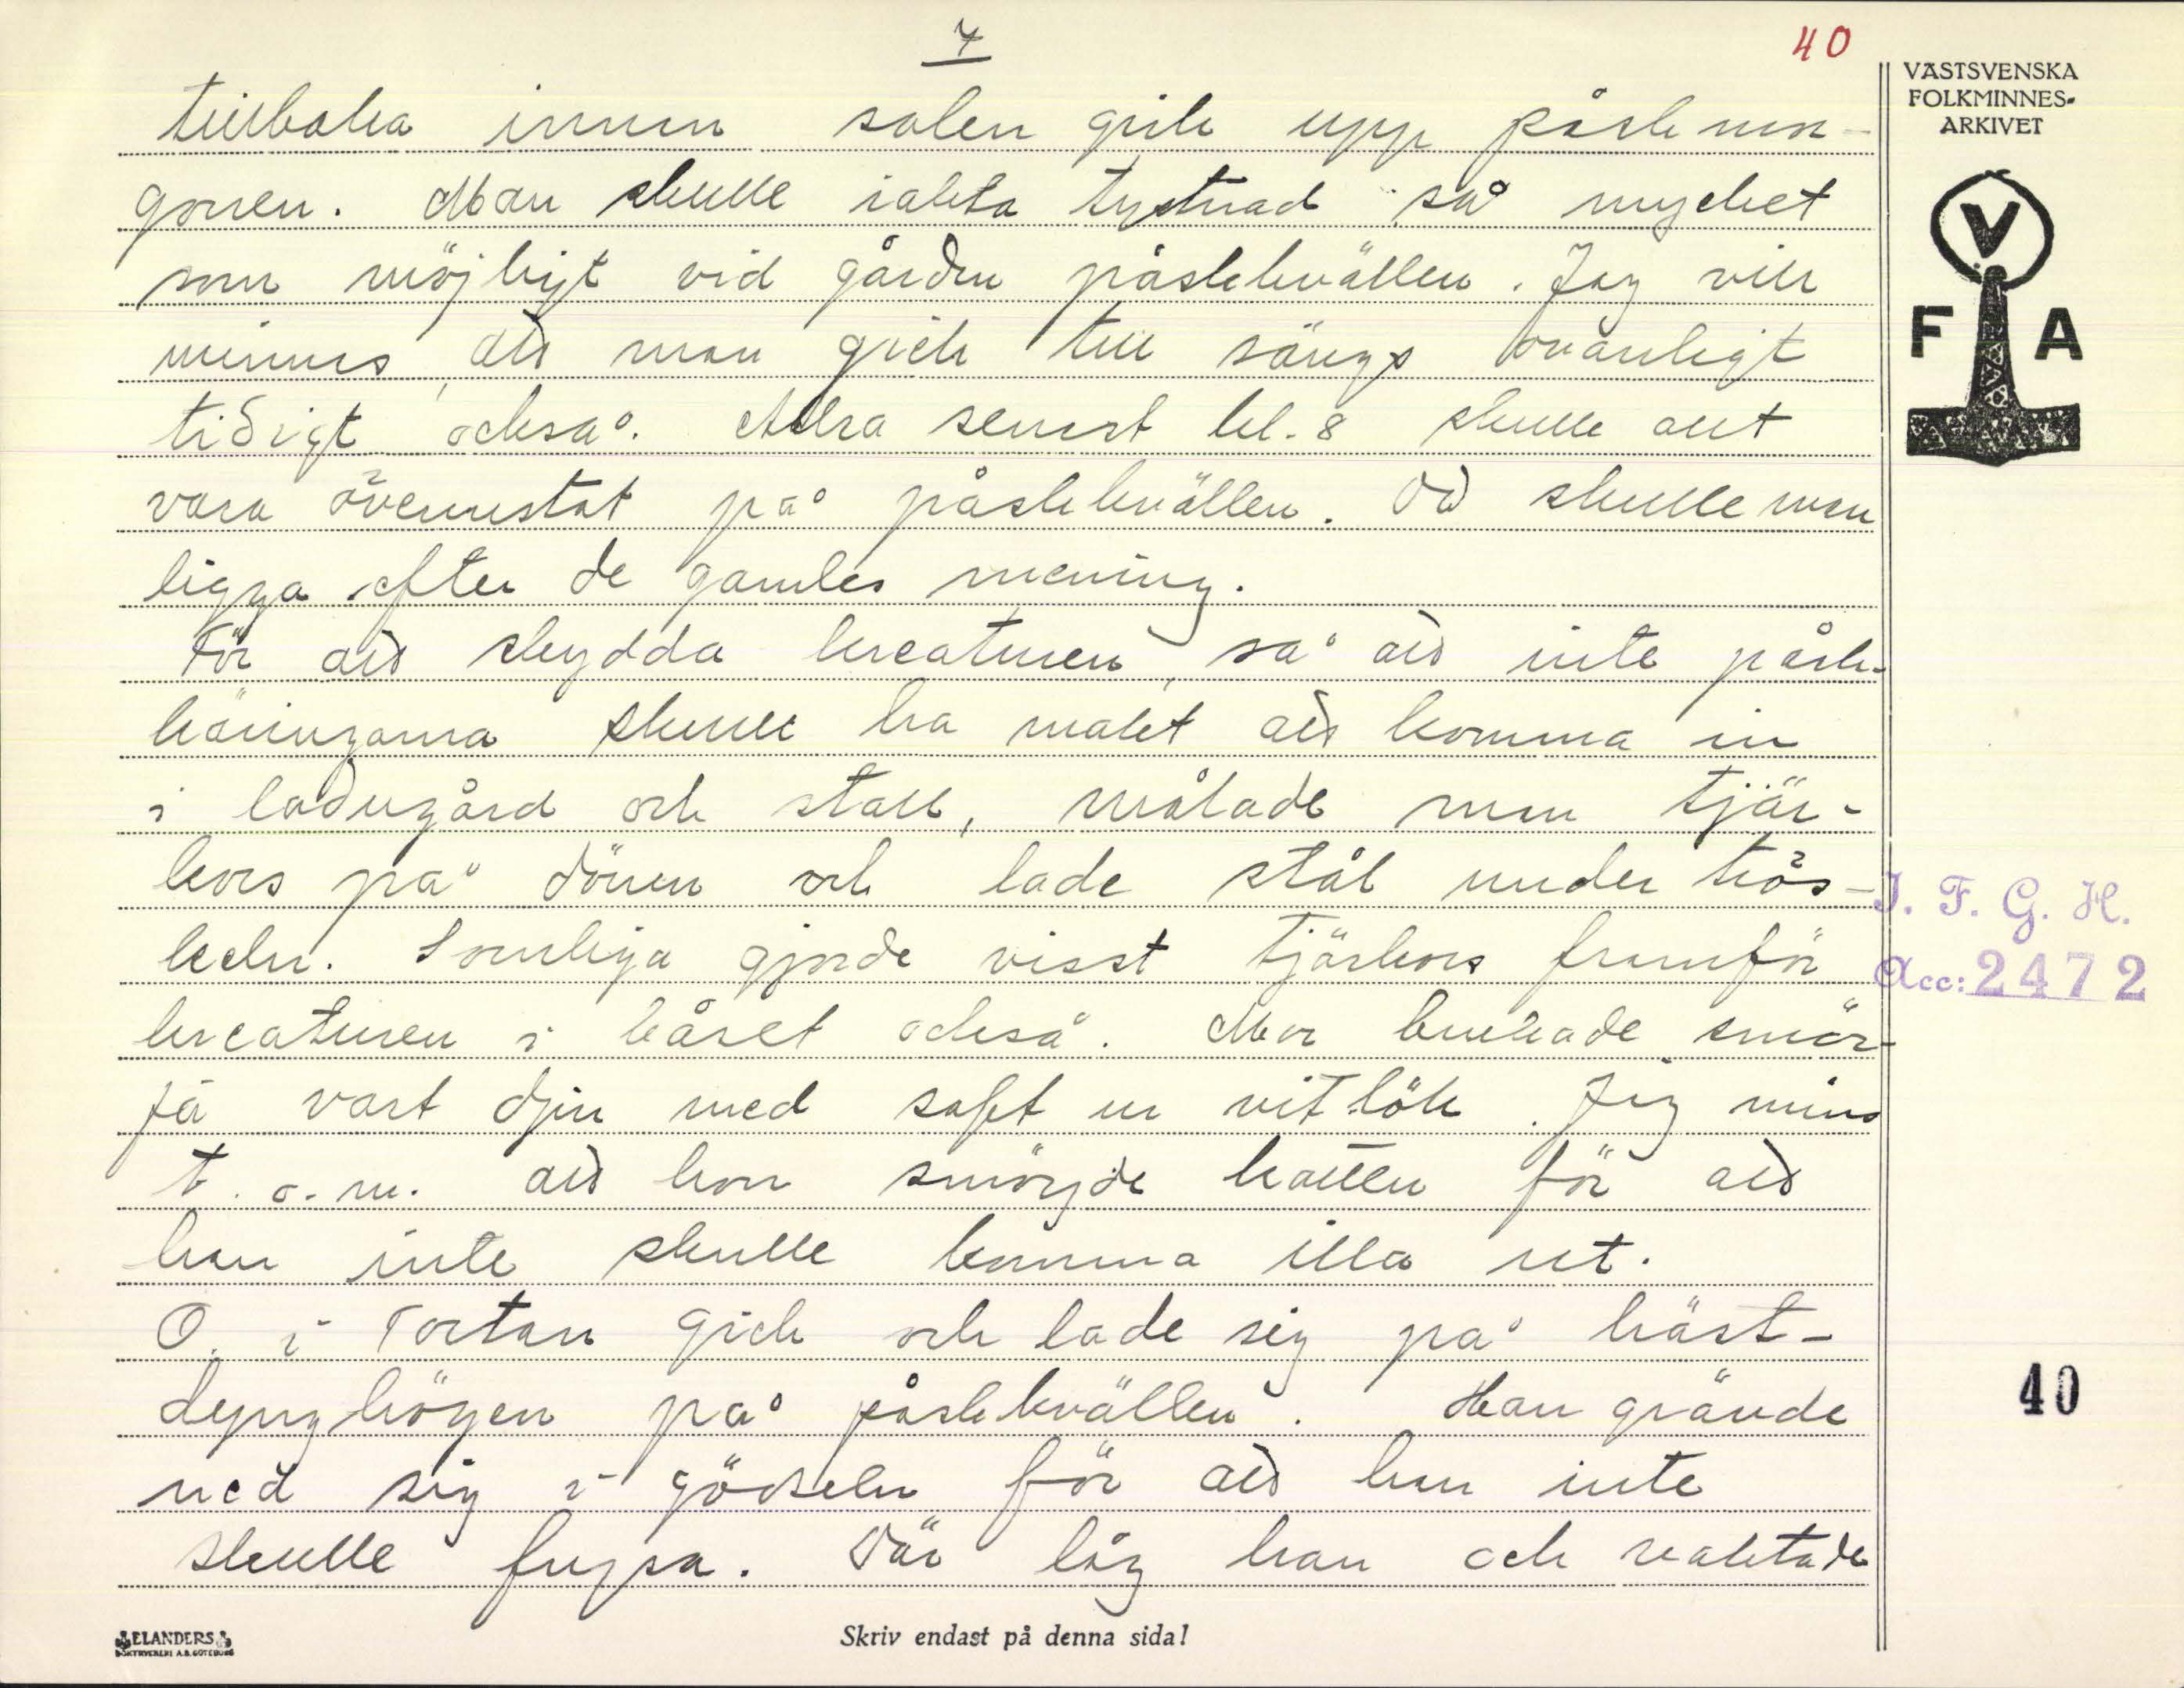 7
40
VÄSTSVENSKA
FOLKMINNES-
ARKIVET
V
F A
tillbaka innan solen gick upp påskmor-
gonen. Man skulle iakta tystnad så mycket
som möjligt vid gården påskkvällen. Jag vill
minnas, att man gick till sängs ovanligt
tidigt också. Allra senast kl. 8 skulle allt
vara överenstat på påskkvällen. Då skulle man
ligga efter de gamles mening.
För att skydda kreaturen, så att inte påsk-
käringarna skulle ha makt att komma in
i ladugård och stall, målade man tjär-
kors på dörren och lade stål under trös-
keln. Somliga gjorde visst tjärkors framför
kreaturen i båset också. Mor brukade smör-
ja vart djur med saft ur vitlök. Jag mins
t.o.m. att hon smörjde katten för att
han inte skulle komma illa ut.
O. i Tortan gick och lade sig på häst-
dynghögen på påskkvällen. Han grävde
ned sig i gödseln för att han inte
skulle frysa. Där låg han och vaktade
I. F. G. H.
Acc: 2472
40
ELANDERS
BOKTRYCKERI A.B. GÖTEBORG
Skriv endast på denna sida!